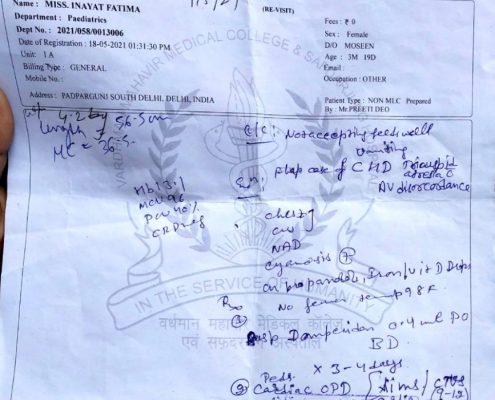 Name : MISS. INAYAT FATIMA
Department : Paediatrics
Dept No.: 2021/058/0013006
Date of Registration : 18-05-2021 01:31:30 PM
Unit: I A
Billing Type : GENERAL
Mobile No.:
Address : PADPARGUNJ SOUTH DELHI, DELHI, INDIA
(RE-VISIT)
Fees : ₹ 0
Sex : Female
D/O MOSEEN
Age : 3M 19D
Email :
Occupation : OTHER
Patient Type : NON MLC Prepared
By : Mr.PREETI DEO
MAHAVIR MEDICAL COLLEGE &
wt 4.2 kg
length = 56.5 cm
HC = 36.5
C/C: Not accepting feeds well
vomiting
case of CHD Tricuspid
atresia
AV discordance
Hb 13.1
MCV 96
PCV 40%
CRP neg
chest
NAD
cyanosis
on propranolol, Iron/vit D Drops
No fever temp 98 F
IN THE SERVICE OF HUMANITY
Rx
Domperidon 0.4 ml PO
BD
वर्धमान महावीर मेडिकल कॉलेज
एवं सफदरजंग अस्पताल
x 3-4 days
Peds.
② Cardiac OPD [Aims / CTVS